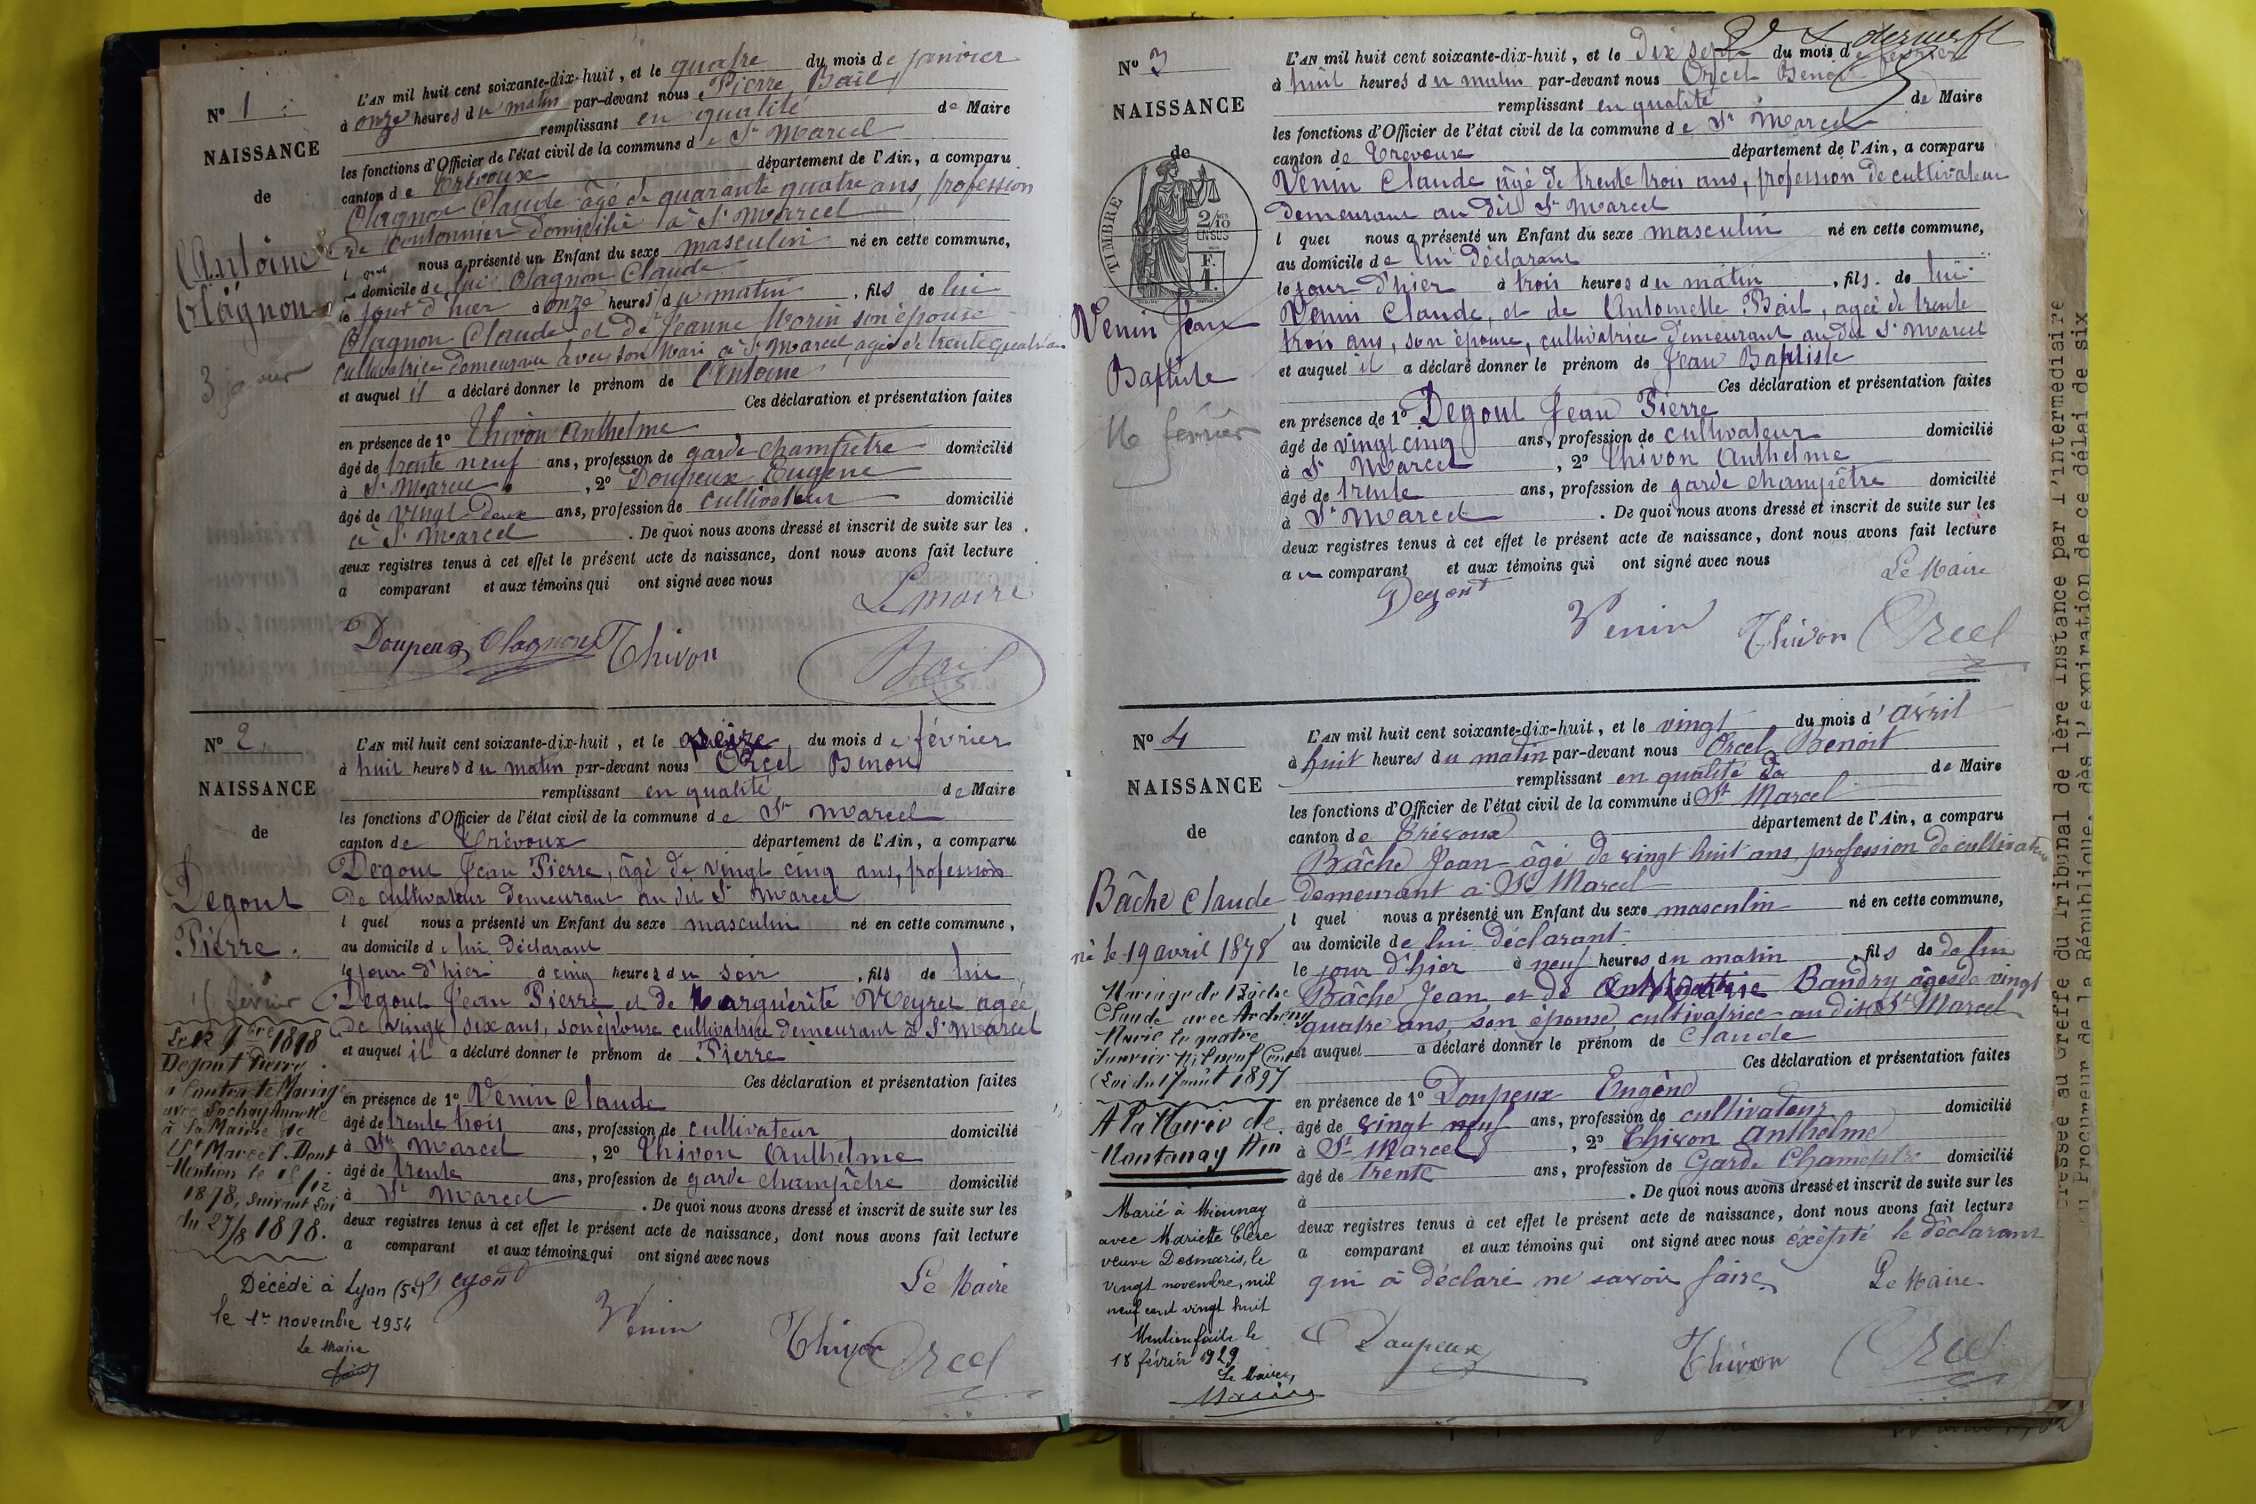 N° 1
NAISSANCE
de
Antoine
Olagnon
3 janvier
L'AN mil huit cent soixante-dix-huit, et le quatre du mois de janvier
à onze heures du matin par-devant nous Pierre Bail
remplissant en qualité de Maire
les fonctions d'Officier de l'état civil de la commune de St Marcel
canton de Trévoux département de l'Ain, a comparu
Olagnon Claude âgé de quarante quatre ans, profession
de cantonnier domicilié à St Marcel
lequel nous a présenté un Enfant du sexe masculin né en cette commune,
au domicile de lui Olagnon Claude
le jour d'hier à onze heures du matin, fils de lui
Olagnon Claude et de Jeanne Morin son épouse
cultivatrice demeurant avec son Mari à St Marcel agée de trente quatre ans
et auquel il a déclaré donner le prénom de Antoine
Ces déclaration et présentation faites
en présence de 1° Thivon Anthelme
âgé de trente neuf ans, profession de garde champêtre domicilié
à St Marcel, 2° Doupeux Eugène
âgé de vingt-deux ans, profession de cultivateur domicilié
à St Marcel. De quoi nous avons dressé et inscrit de suite sur les
deux registres tenus à cet effet le présent acte de naissance, dont nous avons fait lecture
a comparant et aux témoins qui ont signé avec nous
Le maire
Doupeux Olagnon Thivon Bail
N° 2
NAISSANCE
de
Degout
Pierre.
15 février
Degout Pierre
à contracté Mariage
à la Mairie de
St Marcel. Dont
Mention le 15/12
1898, suivant Loi
Décédé à Lyon (5e)
le 1er novembre 1954
Le Maire
L'AN mil huit cent soixante-dix-huit, et le seize du mois de février
à huit heures du matin par-devant nous Orcel Benoit
remplissant en qualité de Maire
les fonctions d'Officier de l'état civil de la commune de St Marcel
canton de Trévoux département de l'Ain, a comparu
Degout Jean Pierre, âgé de vingt cinq ans, profession
de cultivateur demeurant au dit St Marcel
lequel nous a présenté un Enfant du sexe masculin né en cette commune,
au domicile de lui déclarant
le jour d'hier à cinq heures du soir, fils de lui
Degout Jean Pierre et de Marguerite Meyret agée
de vingt six ans, son épouse cultivatrice demeurant à St Marcel
et auquel il a déclaré donner le prénom de Pierre
Ces déclaration et présentation faites
en présence de 1° Venin Claude
âgé de trente trois ans, profession de cultivateur domicilié
à St Marcel, 2° Thivon Anthelme
âgé de trente ans, profession de garde champêtre domicilié
à St Marcel. De quoi nous avons dressé et inscrit de suite sur les
deux registres tenus à cet effet le présent acte de naissance, dont nous avons fait lecture
a comparant et aux témoins qui ont signé avec nous
Le Maire
Degout Venin Thivon Orcel
N° 3
NAISSANCE
de
TIMBRE
2/10
EN SUS
F.
1.
Venin Jean
Baptiste
16 février
L'AN mil huit cent soixante-dix-huit, et le Dix sept du mois de février
à huit heures du matin par-devant nous Orcel Benoit
remplissant en qualité de Maire
les fonctions d'Officier de l'état civil de la commune de St Marcel
canton de Trévoux département de l'Ain, a comparu
Venin Claude âgé de trente trois ans, profession de cultivateur
demeurant au dit St Marcel
lequel nous a présenté un Enfant du sexe masculin né en cette commune,
au domicile de lui déclarant
le jour d'hier à trois heures du matin, fils de lui
Venin Claude, et de Antoinette Bail, agée de trente
trois ans, son épouse, cultivatrice demeurant au dit St Marcel
et auquel il a déclaré donner le prénom de Jean Baptiste
Ces déclaration et présentation faites
en présence de 1° Degout Jean Pierre
âgé de vingt cinq ans, profession de cultivateur domicilié
à St Marcel, 2° Thivon Anthelme
âgé de trente ans, profession de garde champêtre domicilié
à St Marcel. De quoi nous avons dressé et inscrit de suite sur les
deux registres tenus à cet effet le présent acte de naissance, dont nous avons fait lecture
au comparant et aux témoins qui ont signé avec nous
Le Maire
Degout Venin Thivon Orcel
N° 4
NAISSANCE
de
Bâche Claude
né le 19 avril 1878
Mariage de Bâche
Claude avec
Marie le quatre
Janvier Mil neuf Cent
(Loi du 17 août 1897
A la Mairie de
Montanay Ain
Marié à Mionnay
avec Mariette Clère
veuve Desmaris, le
vingt novembre, mil
neuf cent vingt huit
Mention faite le
18 février 1929
Le Maire,
L'AN mil huit cent soixante-dix-huit, et le vingt du mois d'avril
à huit heures du matin par-devant nous Orcel Benoit
remplissant en qualité de de Maire
les fonctions d'Officier de l'état civil de la commune d St Marcel
canton de Trévoux département de l'Ain, a comparu
Bâche Jean âgé de vingt huit ans, profession de cultivateur
demeurant à St Marcel
lequel nous a présenté un Enfant du sexe masculin né en cette commune,
au domicile de lui déclarant
le jour d'hier à neuf heures du matin, fils de de lui
Bâche Jean et de Baudry âgée de vingt
quatre ans, son épouse cultivatrice au dit St Marcel
et auquel a déclaré donner le prénom de Claude
Ces déclaration et présentation faites
en présence de 1° Doupeux Eugène
âgé de vingt neuf ans, profession de cultivateur domicilié
à St Marcel, 2° Thivon Anthelme
âgé de trente ans, profession de Garde Champêtre domicilié
à . De quoi nous avons dressé et inscrit de suite sur les
deux registres tenus à cet effet le présent acte de naissance, dont nous avons fait lecture
a comparant et aux témoins qui ont signé avec nous éxepté le déclarant
qui à déclaré ne savoir faire.
Le Maire
Doupeux Thivon Orcel
Greffe du Tribunal de 1ère instance par l'intermédiaire
du Procureur de la République, dès l'expiration de ce délai de six